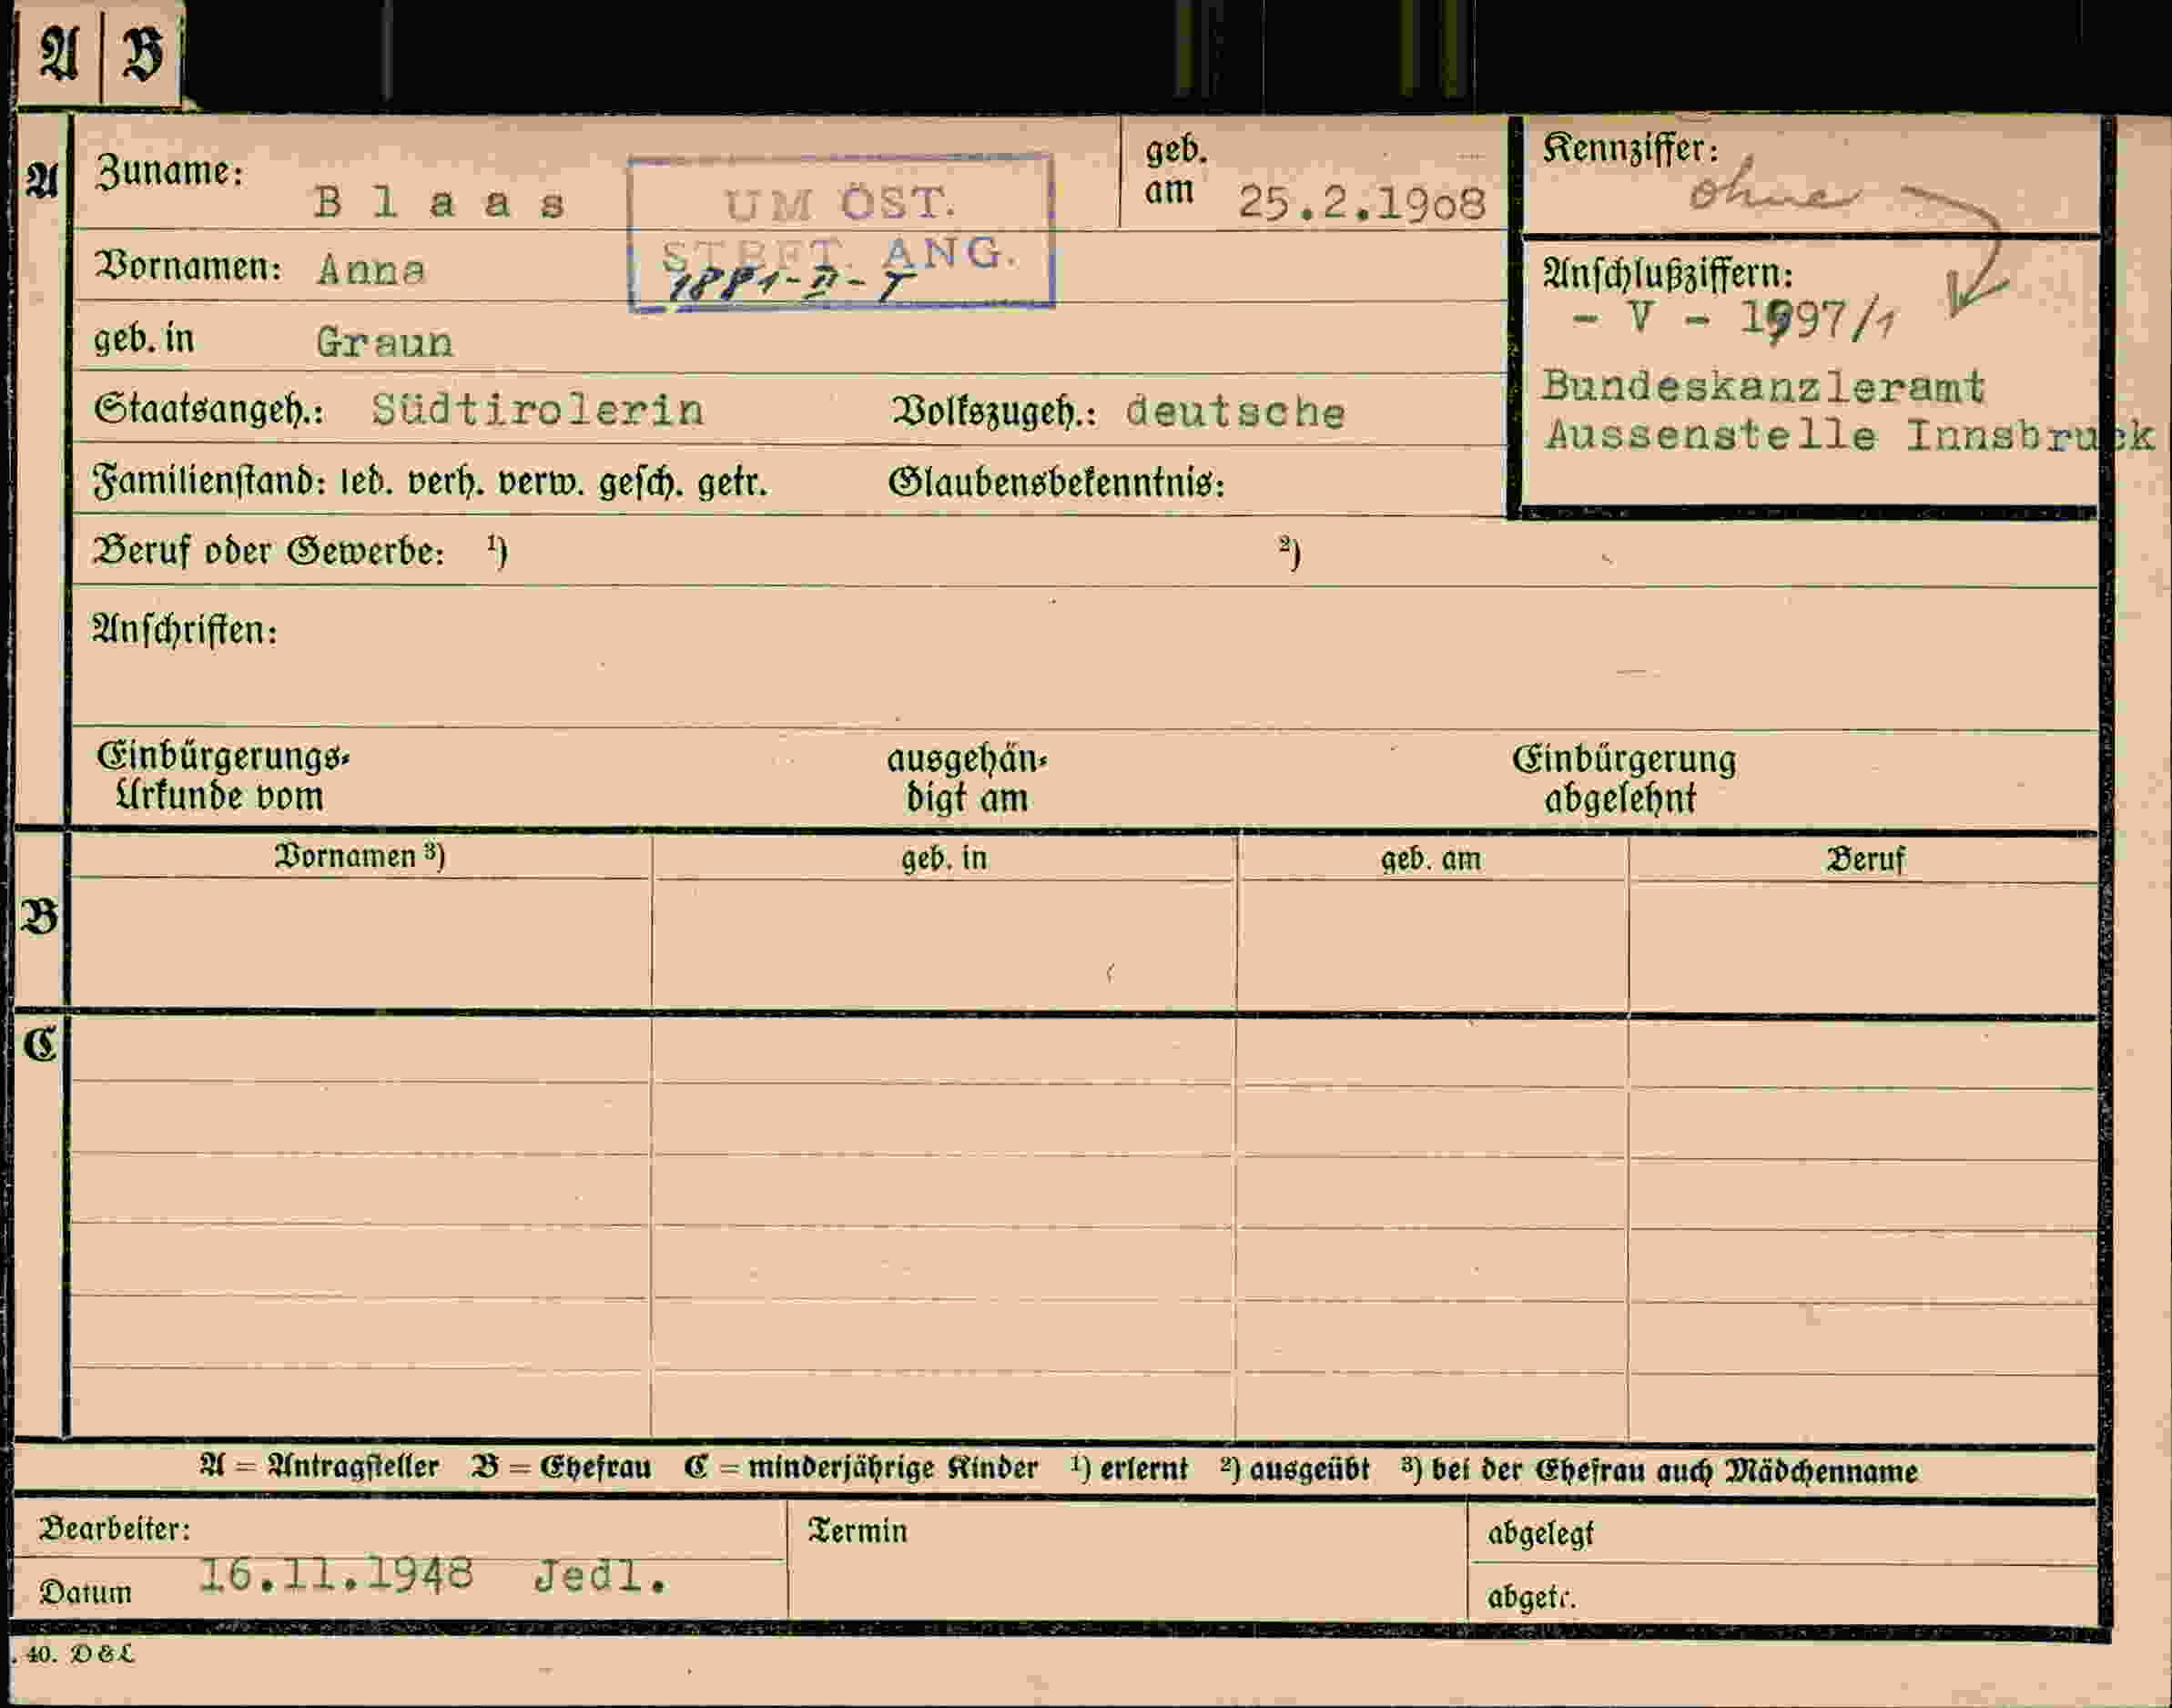 A B
A Zuname: Blaas geb. am 25.2.1908 Kennziffer: ohne
UM ÖST.
STBFT. ANG.
1881-II-T
Vornamen: Anna
Anschlußziffern:
- V - 1997/1
geb. in Graun
Bundeskanzleramt
Aussenstelle Innsbruck
Staatsangeh.: Südtirolerin Volkszugeh.: deutsche
Familienstand: led. verh. verw. gesch. getr. Glaubensbekenntnis:
Beruf oder Gewerbe: ¹) ²)
Anschriften:
Einbürgerungs- ausgehän- Einbürgerung
Urkunde vom digt am abgelehnt
Vornamen ³) geb. in geb. am Beruf
B
C
A = Antragsteller B = Ehefrau C = minderjährige Kinder ¹) erlernt ²) ausgeübt ³) bei der Ehefrau auch Mädchenname
Bearbeiter: Termin abgelegt
Datum 16.11.1948 Jedl. abgetr.
. 40. D & L